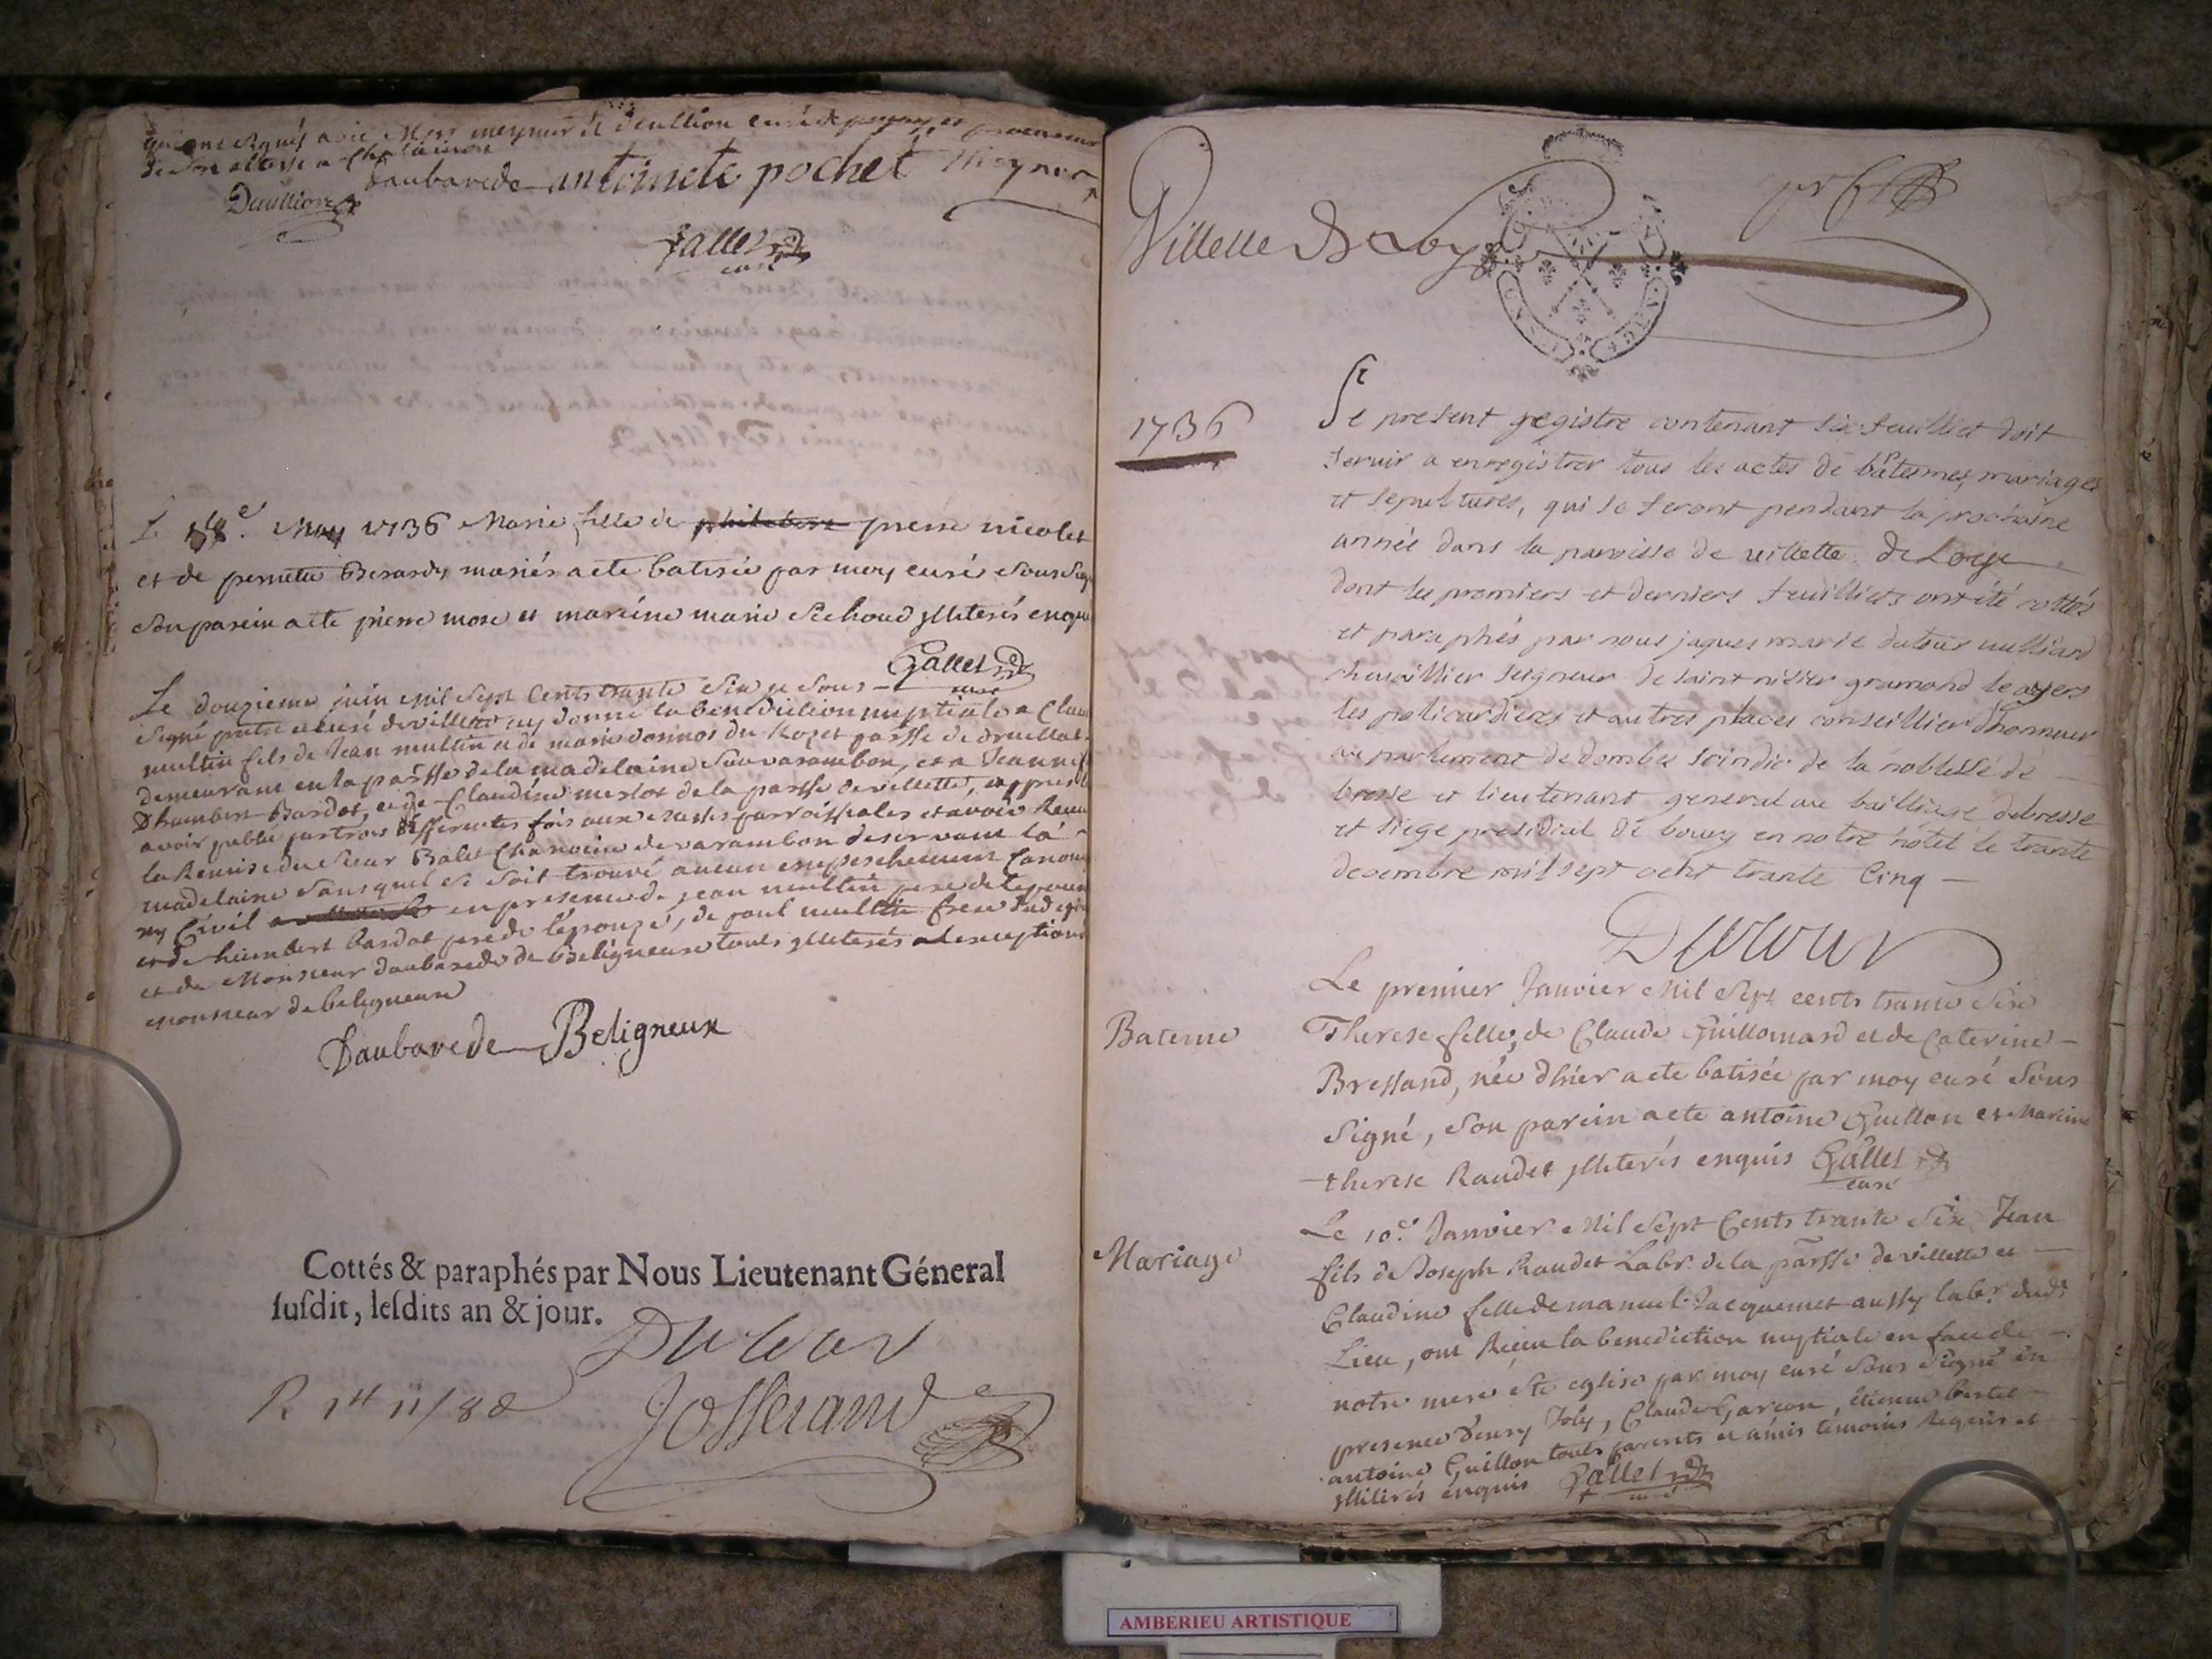 qui ont signés avec Mess meynier et deullion curé de perges et procureur
de son altesse a Chatainon
Daubarede antoinete pochet Meynier
Daullion
Gallet
curé
Le 18e. May 1736 Marie fille de philebert pierre nicolet
et de pernette Berardy mariés a ete batisée par moy curé sous sig
son parein a ete pierre more et mareine marie Sichoud illiterés enquis
Gallet
curé
Le douzieme juin mil sept cents trante six je sous
signé pretre et curé de villette ay donné la benediction nuptiale a Clau
multin fils de Jean multin et de marie donnos du Rozet parsse de druillat
demeurant en la parsse de la madelaine sou varambon, et a Jeanne f
Dhumbert Bardot, et de Claudine merlot de la parsse de villette, appres l
avoir publié par trois differentes fois aux messes parroissiales et avoir Receu
la Remise du sieur Balet Chanoine de varambon deservant la
madelaine sans quil se soit trouvé aucun empeschement Canoni
ny Civil en presence de jean multin pere de lepoux
et de humbert bardot pere de lépouze, de paul multin frere dud epou
et de Monsieur daubarede de Beligneux touts illiterés a lexception
monsieur de beligneux
Daubarede Beligneux
Cottés & paraphés par Nous Lieutenant Géneral
susdit, lesdits an & jour.
Dutour
R 1tt 11/8d
Josserand
Villette De Loye
1736
Le present registre contenant six feuilliet doit
servir a enregistrer tous les actes de bâtemes, mariages
et sepultures, qui se feront pendant la prochaine
année dans la paroisse de villette de Loye
dont les premiers et derniers feuilliets ont été cottés
et paraphés par nous jaques marie dutour vulliard
chevaillier seigneur de saint nisier gramond le
les policardieres et autres places conseillier dhonneur
au parlement de dombes scindic de la noblesse de
bresse et lieutenant general au bailliage de bresse
et siege presidial de bourg en notre hotel le trante
decembre mil sept cent trante Cinq
Dutour
Le premier Janvier Mil Sept cents trante Six
Bateme
Therese fille, de Claude Guillomard et de Caterine
Bressand, née dhier a ete batisée par moy curé sous
signé, son parein a ete antoine Guillon et Mareine
therese Raudet illiterés enquis Gallet
curé
Le 10e. Janvier Mil Sept Cents trante Six Jean
Mariage
fils de Joseph Raudet Labr. de la parsse de villette et
Claudine fille de manuel Jacquemet aussy labr. dudt
Lieu, ont Receu la benediction nuptiale en face de
notre mere ste eglise par moy curé sous signé en
presence denry Joly, Claude Garcon, étienne bertet
antoine Guillon touts parents et amis temoins Requis et
illiterés enquis Gallet
curé
AMBERIEU ARTISTIQUE